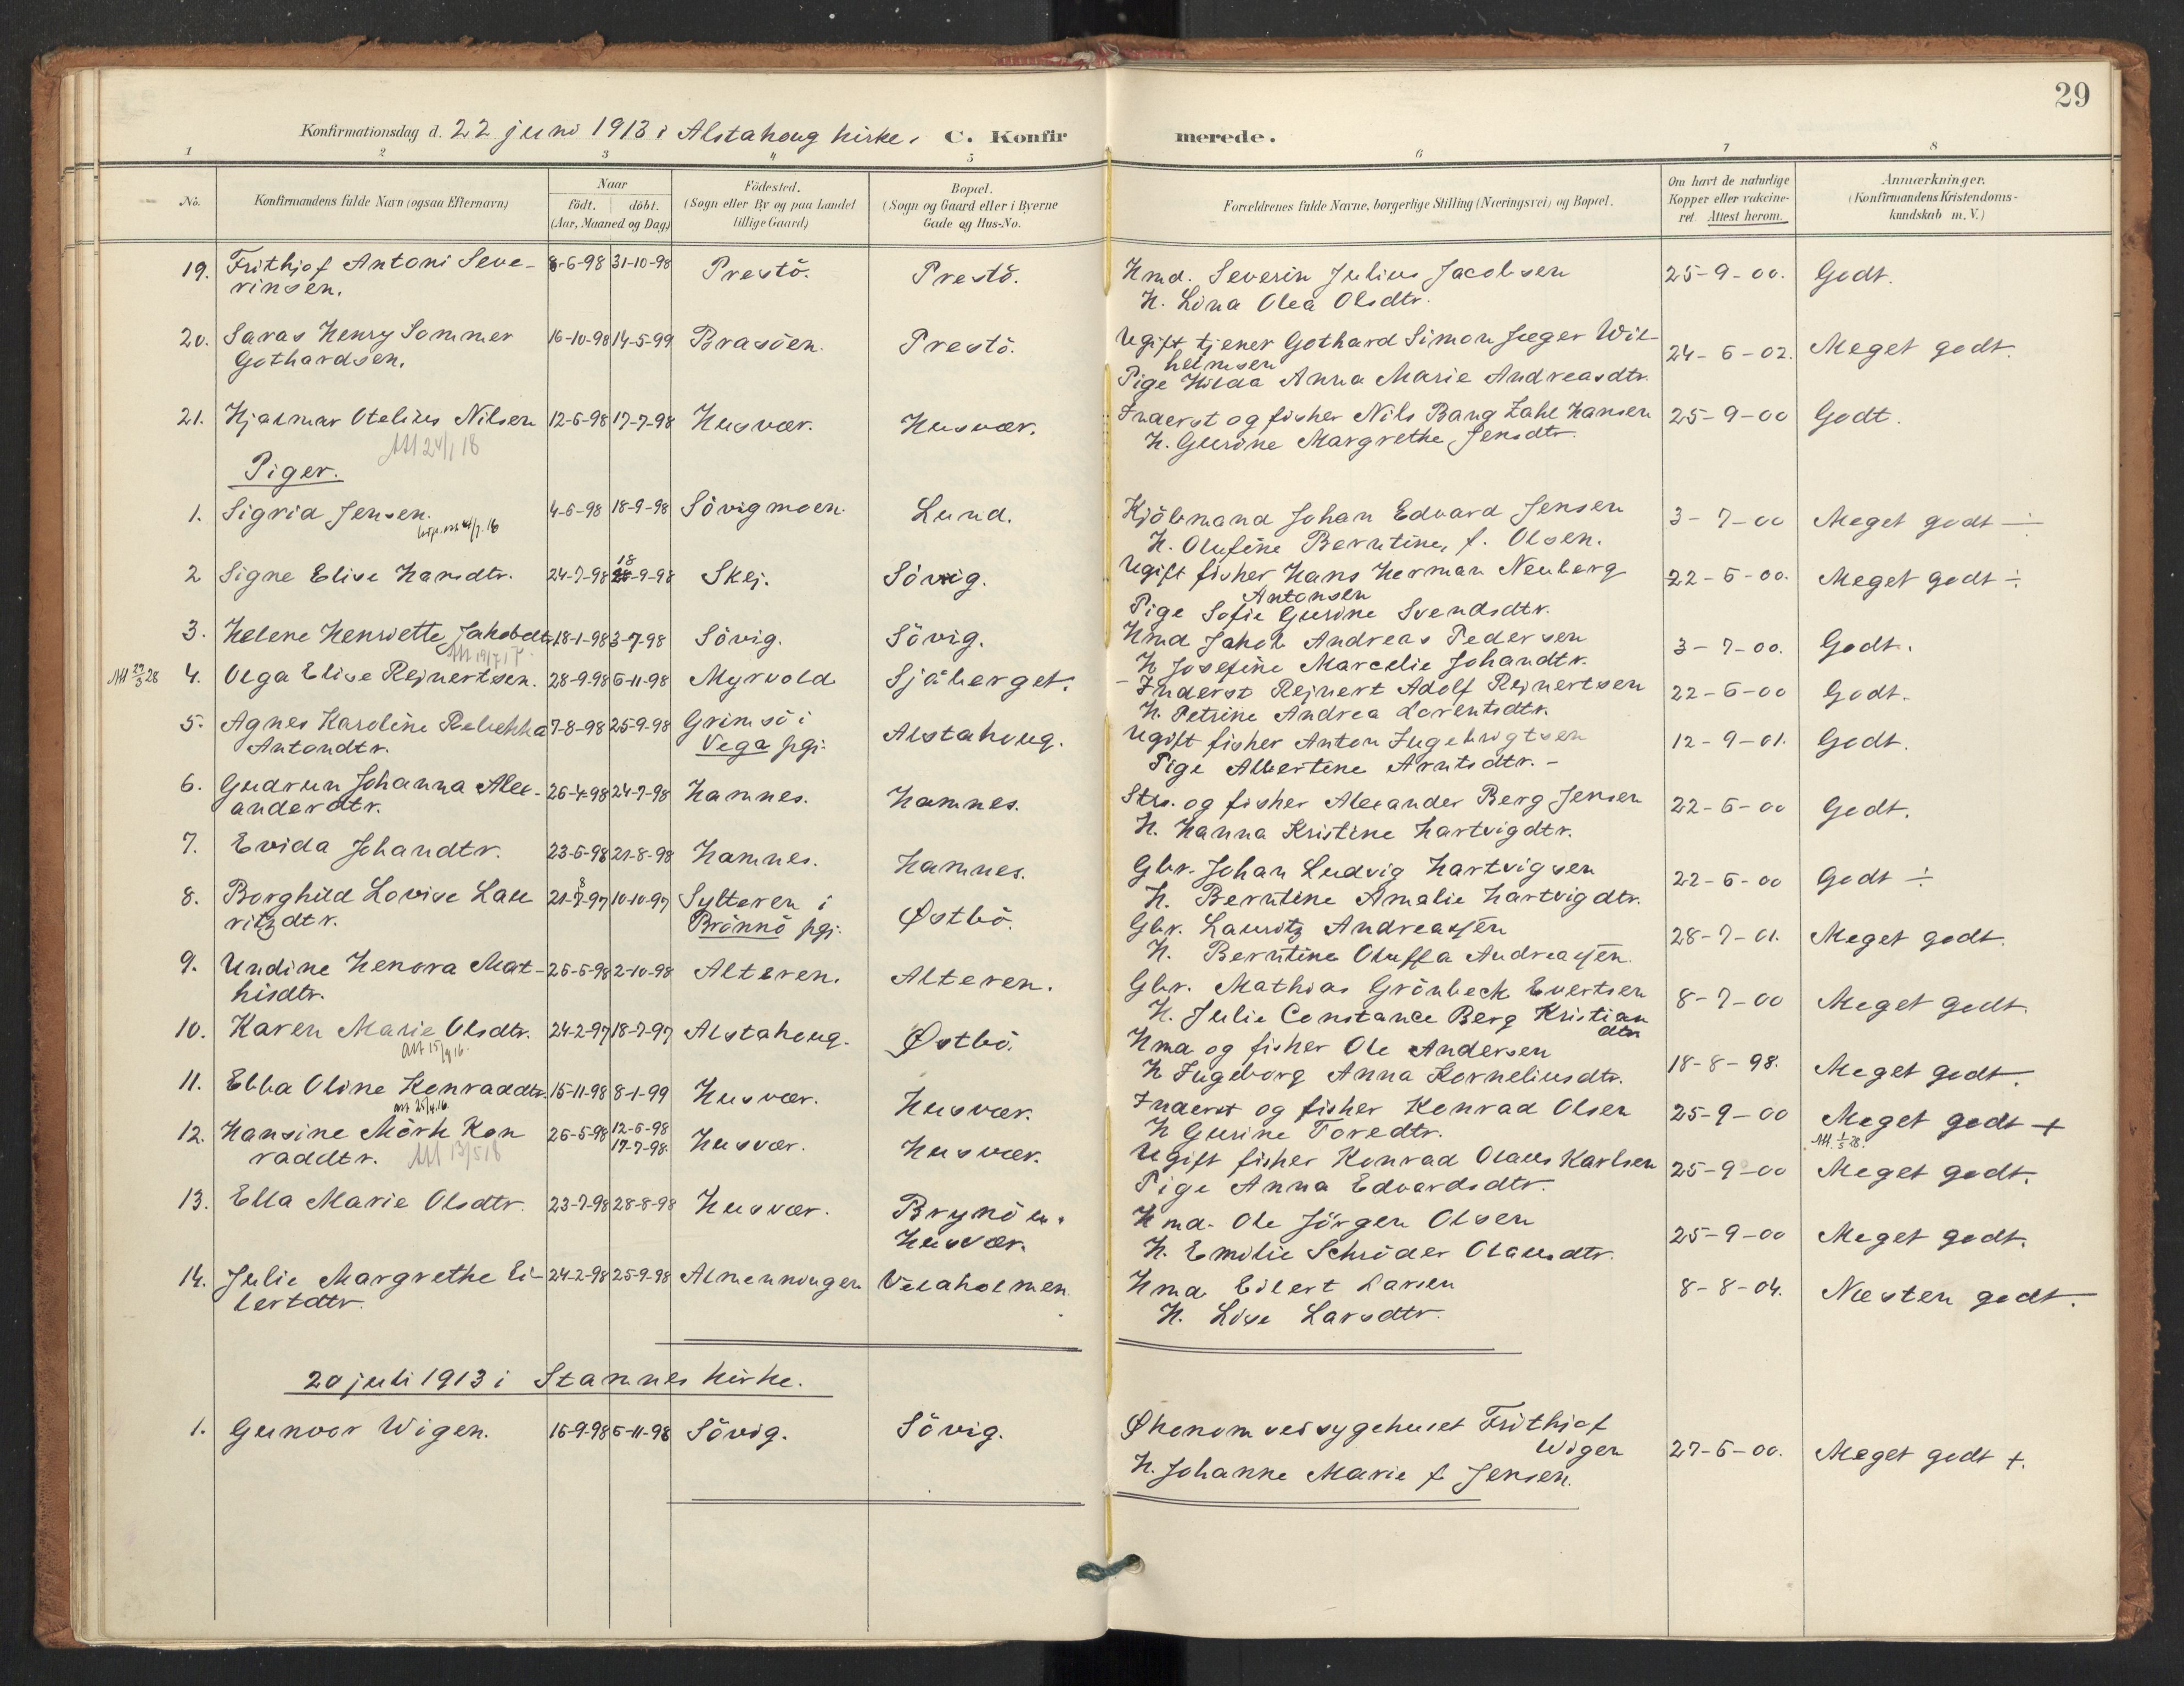 29
Konfirmationsdag d. 22 juni 1913 i Alstahoug kirke. C. Konfirmerede.
1 2 3 4 5 6 7 8
No.
Konfirmandens fulde Navn (ogsaa Efternavn)
Naar
födt. döbt.
(Aar, Maaned og Dag)
Födested.
(Sogn eller By og paa Landet
tillige Gaard)
Bopæl.
(Sogn og Gaard eller i Byerne
Gade og Hus-No.
Forældrenes fulde Navne, borgerlige Stilling (Næringsvei) og Bopæl.
Om havt de naturlige
Kopper eller vakcine-
ret. Attest herom.
Anmærkninger.
(Konfirmandens Kristendoms-
kundskab m. V.)
19. Frithjof Antoni Seve- 8-6-98 31-10-98 Prestö. Prestö. Kmd. Severin Julius Jacobsen 25-9-00. Godt.
rinsen. H. Lina Olea Olsdtr.
20. Saras Henry Sommer 16-10-98 14-5-99 Brasöen. Prestö. Ugift tjener Gothard Simon Jæger Wil- 24-6-02. Meget godt.
Gothardsen. helmsen
Pige Hilda Anna Marie Andreasdtr.
21. Hjalmar Otelius Nilsen 12-6-98 17-7-98 Husvær. Husvær. Inderst og fisker Nils Bang Zahl Hansen 25-9-00 Godt.
Att 24/1 18 H. Gurine Margrethe Jensdtr.
Piger.
1. Sigrid Jensen. 4-6-98 18-9-98 Sövigmoen. Lund. Kjöbmand Johan Edvard Jensen 3-7-00 Meget godt ÷
H. Olufine Berntine, f. Olsen.
2 Signe Elise Hansdtr. 24-7-98 18-9-98 Skej. Sövig. Ugift fisker Hans Herman Neuberg 22-6-00. Meget godt ÷
Antonsen
Pige Sofie Gurine Svendsdtr.
3. Helene Henriette Jakobdtr. 18-1-98 3-7-98 Sövig. Sövig. Kmd Jakob Andreas Pedersen 3-7-00. Godt.
Att 19/7 17 H Josefine Marcelie Johandtr.
Att 22/3 28 4. Olga Elise Rejnertsen. 28-9-98 6-11-98 Myrvold Sjåberget. Inderst Rejnert Adolf Rejnertsen 22-6-00 Godt.
H. Petrine Andrea Lorentsdtr.
5. Agnes Karoline Rebekka 7-8-98 25-9-98 Grimsö i Alstahoug. Ugift fisker Anton Ingebrigtsen 12-9-01. Godt.
Antondtr. Vega pgj. Pige Albertine Arntsdtr. -
6. Gudrun Johanna Alex- 26-4-98 24-7-98 Hamnes. Hamnes. Strs. og fisker Alexander Berg Jensen 22-6-00 Godt.
anderdtr. H. Hanna Kristine Hartvigdtr.
7. Evida Johandtr. 23-6-98 21-8-98 Hamnes. Hamnes. Gbr. Johan Ludvig Hartvigsen 22-6-00 Godt ÷
H. Berntine Amalie Hartvigdtr.
8. Borghild Lovise Lau 21-8-97 10-10-97 Sylteren i Østbö. Gbr. Lauritz Andreassen 28-7-01. Meget godt.
ritzdtr. Brönnö pgj. H. Berntine Oluffa Andreassen.
9. Undine Henora Mat- 26-6-98 2-10-98 Alteren. Alteren. Gbr. Mathias Grönbeck Evertsen 8-7-00 Meget godt.
hisdtr. H. Julie Constance Berg Kristian
dtr
10. Karen Marie Olsdtr. 24-2-97 18-7-97 Alstahoug. Østbö. Kmd og fisker Ole Andersen 18-8-98. Meget godt.
H Ingeborg Anna Korneliusdtr.
11. Ebba Oline Konraddtr. 15-11-98 8-1-99 Husvær. Husvær. Inderst og fisker Konrad Olsen 25-9-00 Meget godt +
H Gurine Toredtr.
12. Hansine Mörk Kon 26-5-98 12-6-98 Husvær. Husvær. Ugift fisker Konrad Olaus Karlsen 25-9-00 Meget godt.
raddtr. Att 13/5 18 17-7-98. Pige Anna Edvardsdtr.
13. Ella Marie Olsdtr. 23-7-98 28-8-98 Husvær. Brynöen. Kmd. Ole Jörgen Olsen 25-9-00 Meget godt.
Husvær. H. Emilie Schröder Olausdtr.
14. Julie Margrethe Ei- 24-2-98 25-9-98 Almenningen Velaholmen. Kmd. Eilert Larsen 8-8-04. Næsten godt.
lertdtr. H. Lise Larsdtr.
20 juli 1913 i Stamnes kirke.
1. Gunvor Wigen. 16-9-98 6-11-98 Sövig. Sövig. Økonom ved sygehuset Frithjof
Wigen 27-6-00. Meget godt +.
H. Johanne Marie f Jensen.